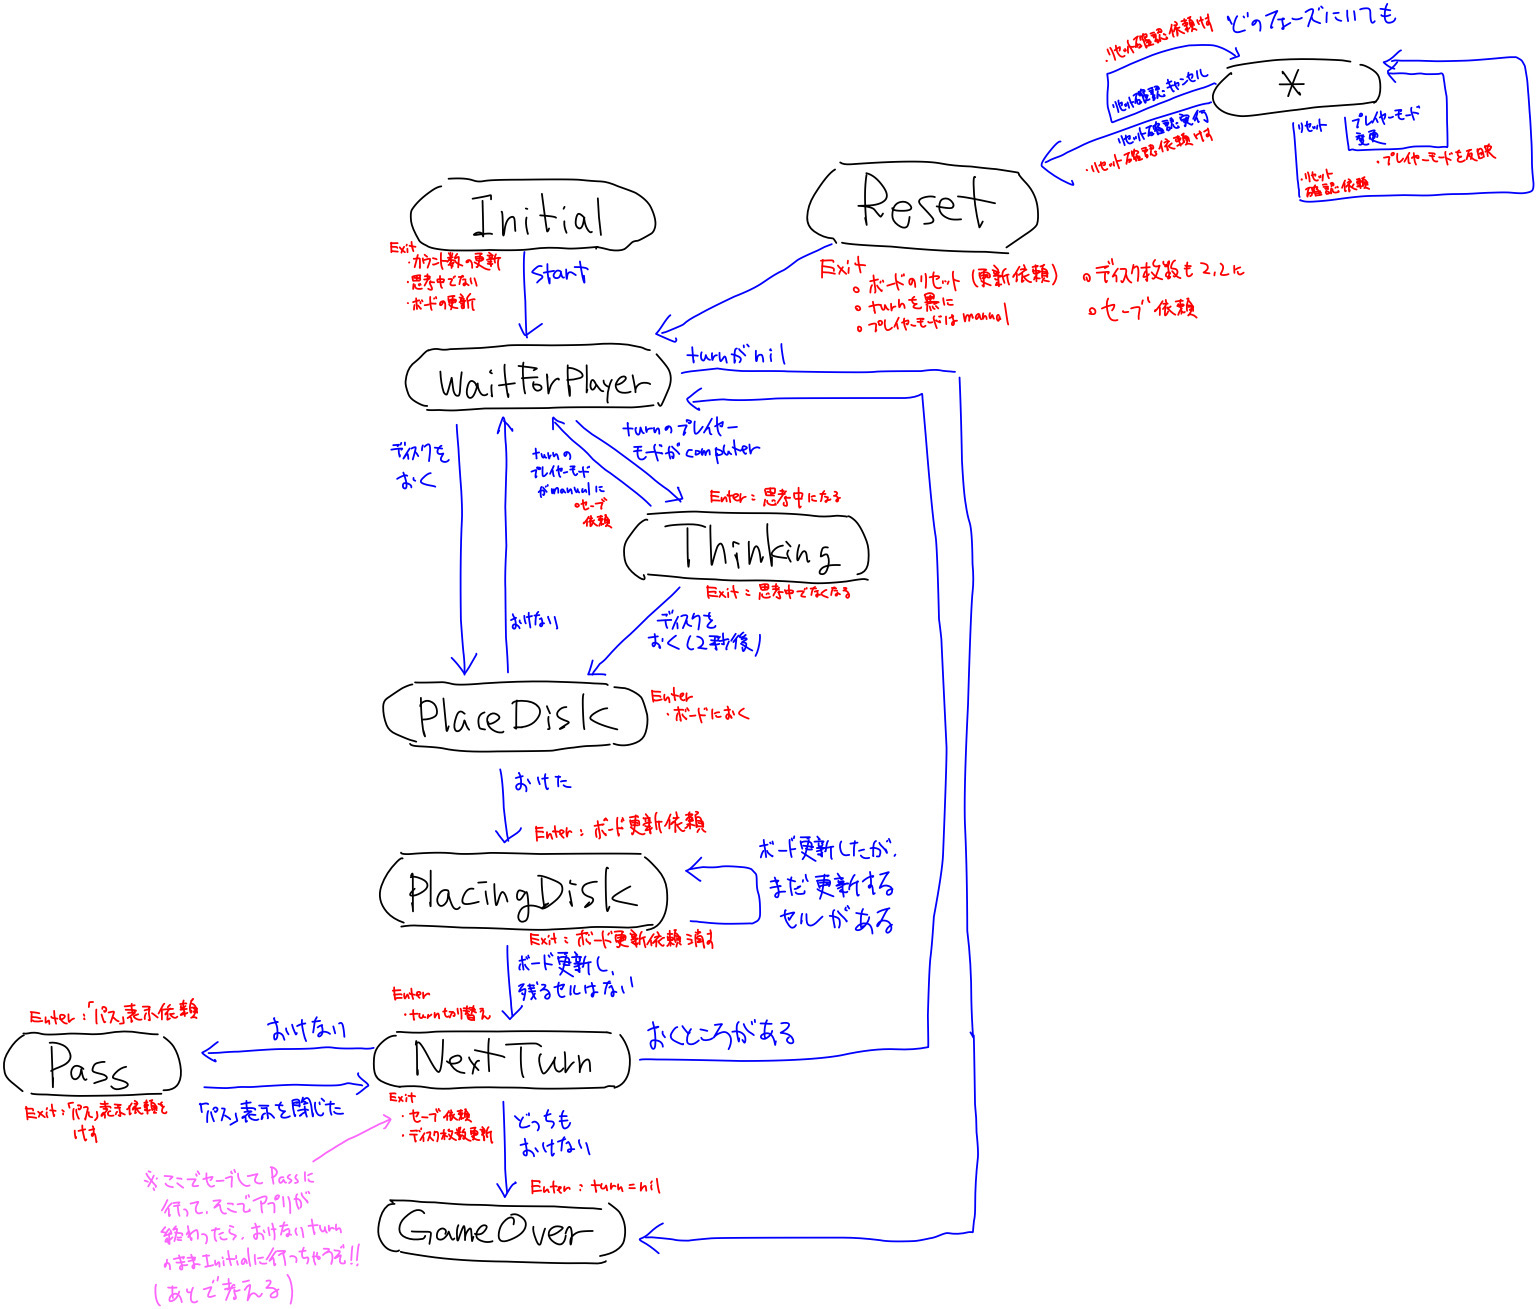 どのフェーズにいても
・リセット確認依頼けす
*
リセット確認キャンセル
リセット確認実行
・リセット確認依頼けす
リセット
プレイヤーモード
変更
・プレイヤーモードを反映
・リセット
確認依頼
Initial
Exit
・カウント数の更新
・思考中でない
・ボードの更新
start
Reset
Exit
○ボードのリセット(更新依頼)
○turnを黒に
○プレイヤーモードはmanual
○ディスク枚数も2,2に
○セーブ依頼
WaitForPlayer
turnがnil
ディスクを
おく
turnの
プレイヤーモード
がmanualに
○セーブ
依頼
turnのプレイヤー
モードがcomputer
Enter:思考中になる
Thinking
Exit:思考中でなくなる
おけない
ディスクを
おく(2秒後)
PlaceDisk
Enter
・ボードにおく
おけた
Enter:ボード更新依頼
PlacingDisk
ボード更新したが、
まだ更新する
セルがある
Exit:ボード更新依頼消す
ボード更新し、
残るセルはない
Enter
・turn切り替え
NextTurn
おくところがある
Enter:「パス」表示依頼
おけない
Pass
Exit:「パス」表示依頼を
けす
「パス」表示を閉じた
Exit
・セーブ依頼
・ディスク枚数更新
どっちも
おけない
Enter:turn=nil
GameOver
※ここでセーブしてPassに
行って、そこでアプリが
終わったら、おけないturn
のままInitialに行っちゃうぞ!!
(あとで考える)